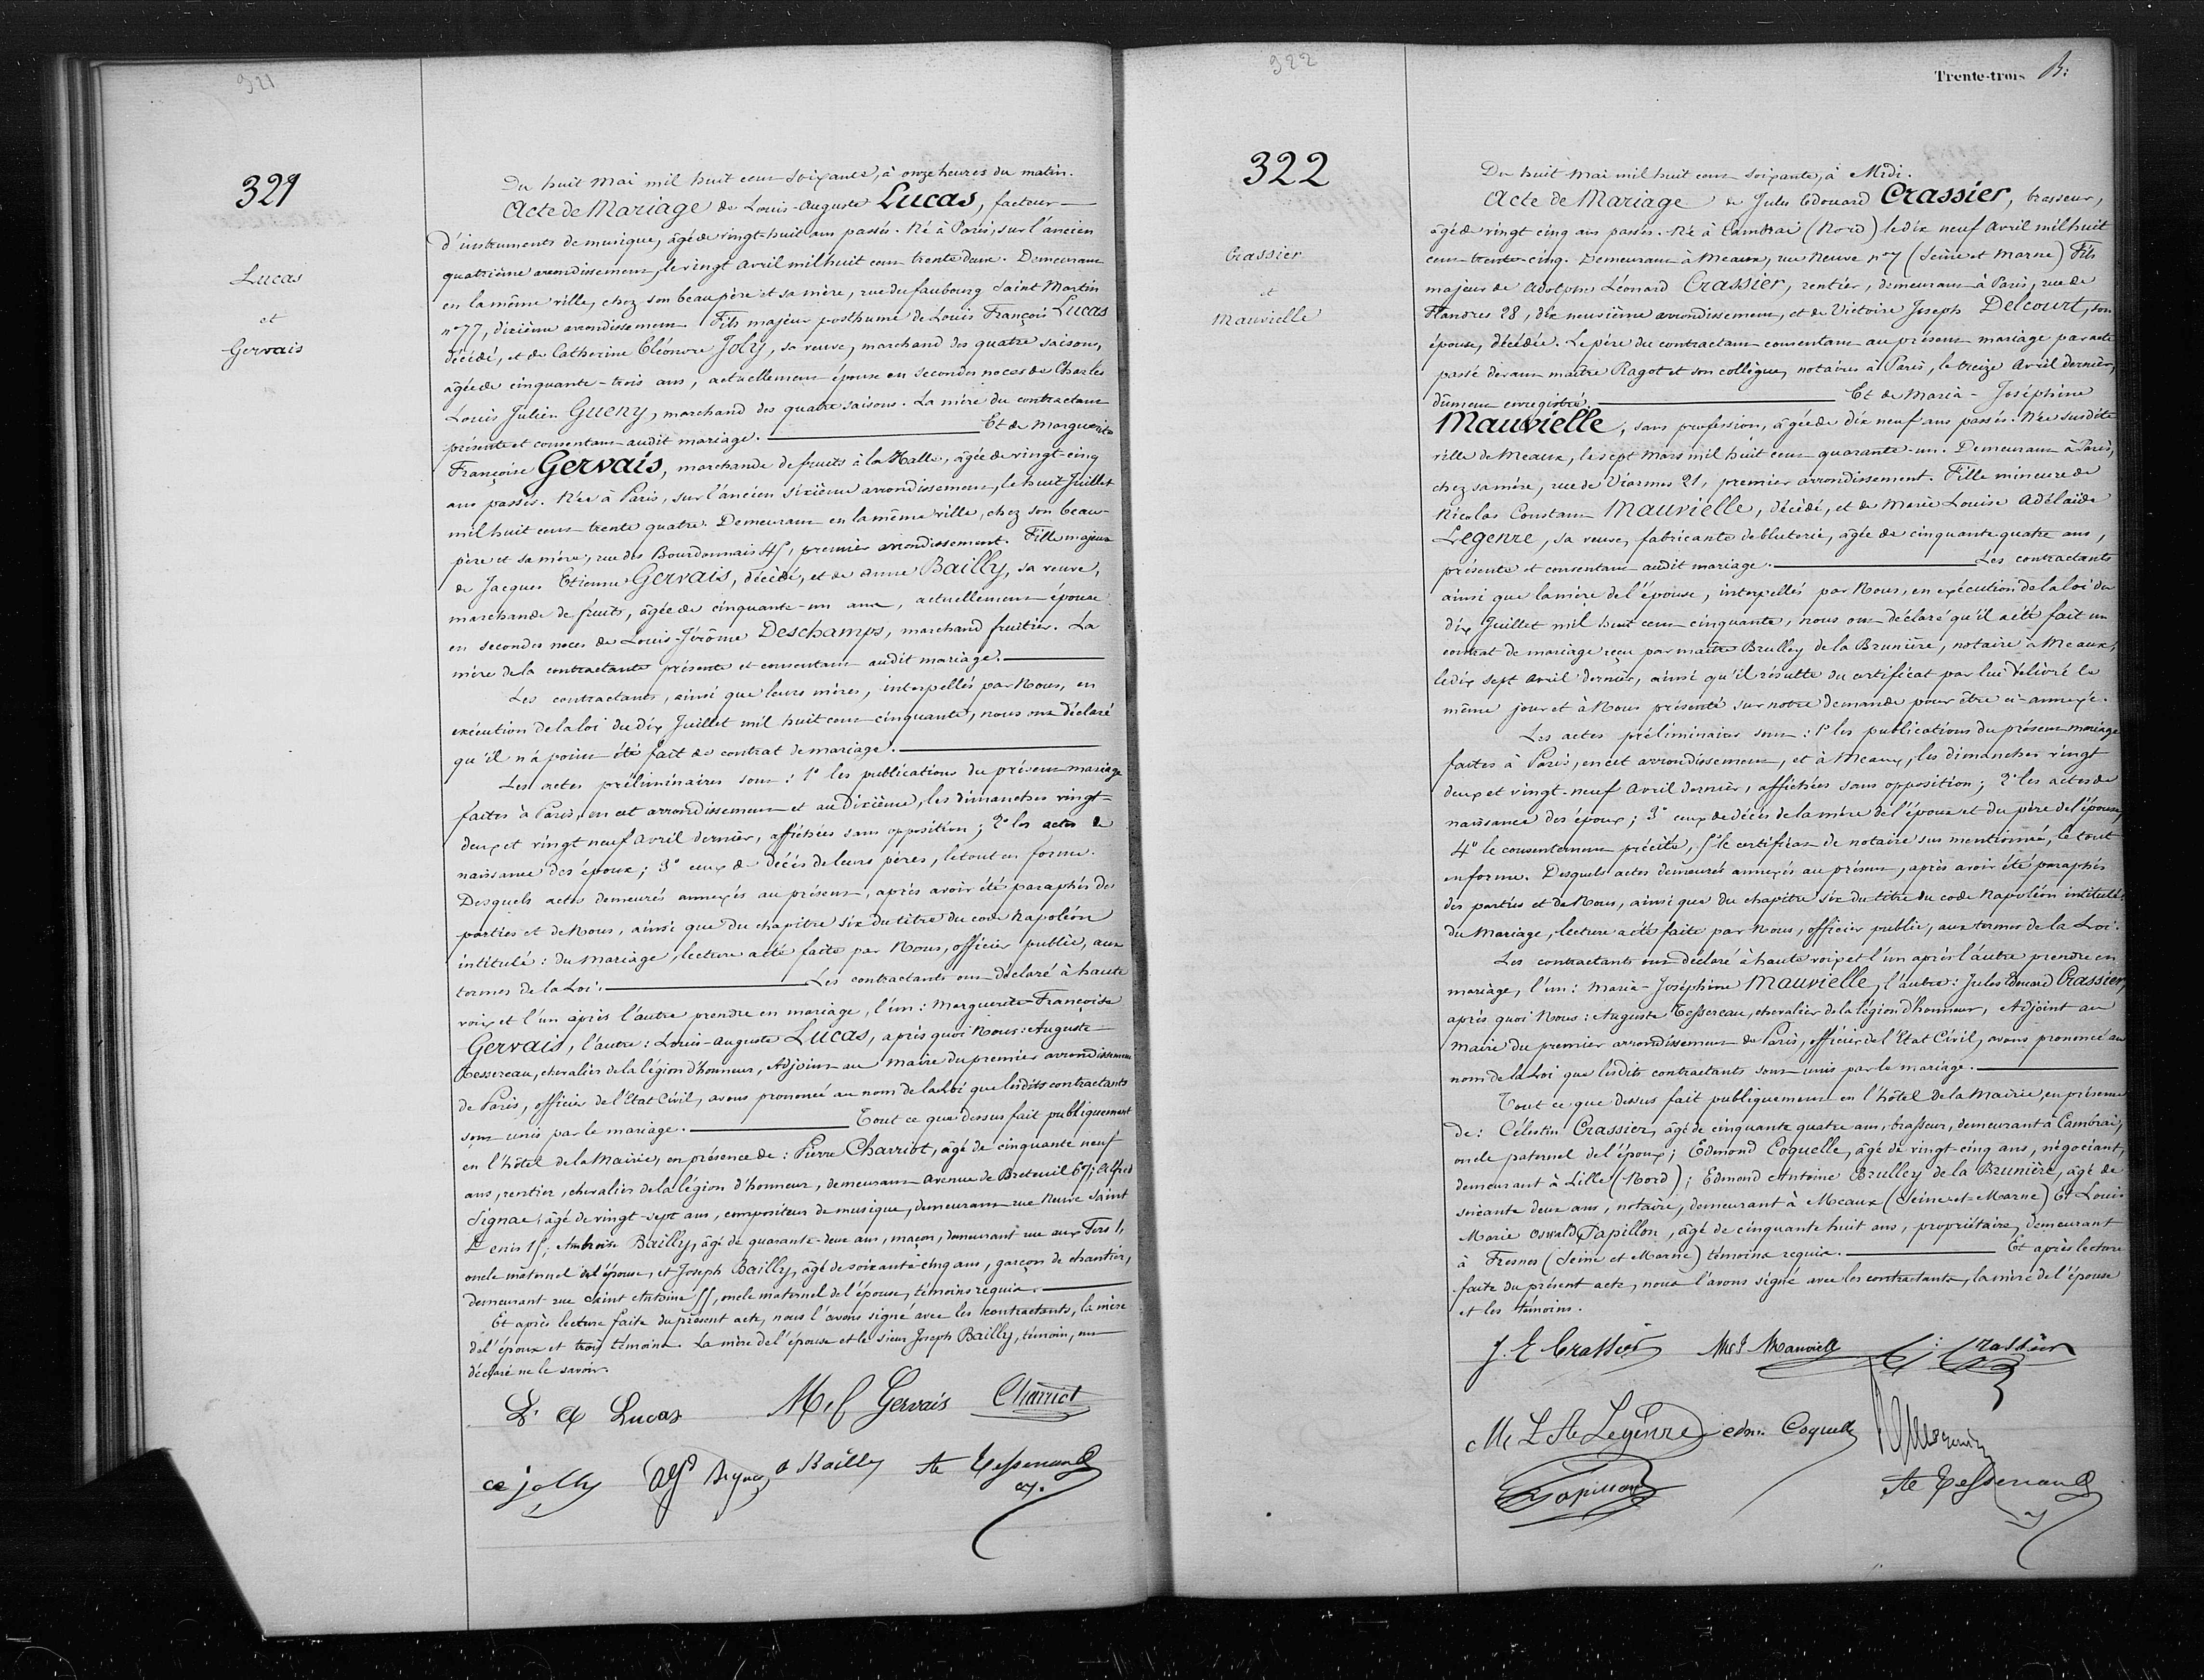 321
321
Lucas
et
Gervais
Du huit Mai mil huit cent soixante, à onze heures du matin.
Acte de Mariage de Louis-Auguste Lucas, facteur
d'instruments de musique, âgé de vingt-huit ans passés. Né à Paris, sur l'ancien
quatrième arrondissement, le vingt avril mil huit cent trente deux. Demeurant
en la même ville, chez son beau père et sa mère, rue du faubourg Saint Martin
n° 77, dixième arrondissement. Fils majeur posthume de Louis François Lucas
décédé, et de Catherine Eléonore Joly, sa veuve, marchand des quatre saisons,
âgée de cinquante-trois ans, actuellement épouse en secondes noces de Charles
Louis Julien Gueny, marchand des quatre saisons. La mère du contractant
présente et consentant audit mariage. Et de Marguerite
Françoise Gervais, marchande de fruits à la Halle, âgée de vingt-cinq
ans passés. Née à Paris, sur l'ancien sixième arrondissement, le huit Juillet
mil huit cent trente quatre. Demeurant en la même ville, chez son beau-
père et sa mère, rue des Bourdonnais 45, premier arrondissement. Fille majeur
de Jacques Etienne Gervais, décédé, et de Anne Bailly, sa veuve,
marchande de fruits, âgée de cinquante-un ans, actuellement épouse
en secondes noces de Louis-Jérôme Deschamps, marchand fruitier. La
mère de la contractante présente et consentant audit mariage.
Les contractants, ainsi que leurs mères, interpellés par Nous, en
exécution de la loi du dix Juillet mil huit cent cinquante, nous ont déclaré
qu'il n'a point été fait de contrat de mariage.
Les actes préliminaires sont : 1° les publications du présent mariage
faites à Paris, en cet arrondissement et au dixième, les dimanches vingt-
deux et vingt neuf avril dernier, affichées sans opposition ; 2° les actes de
naissance des époux ; 3° ceux de décès de leurs pères, le tout en forme.
Desquels actes demeurés annexés au présent, après avoir été paraphés des
parties et de Nous, ainsi que du chapitre six du titre du code Napoléon
intitulé : du Mariage, lecture a été faite par Nous, officier public, aux
termes de la Loi. Les contractants ont déclaré à haute
voix et l'un après l'autre prendre en mariage, l'un : Marguerite-Françoise
Gervais, l'autre : Louis-Auguste Lucas, après quoi Nous : Auguste
Tessereau, chevalier de la légion d'honneur, Adjoint au Maire du premier arrondissement
de Paris, officier de l'Etat Civil, avons prononcé au nom de la Loi que lesdits contractants
sont unis par le mariage. Tout ce que dessus fait publiquement
en l'hôtel de la Mairie, en présence de : Pierre Charriot, âgé de cinquante neuf
ans, rentier, chevalier de la légion d'honneur, demeurant avenue de Breteuil 67 ; Alfred
Signac, âgé de vingt-sept ans, compositeur de musique, demeurant rue Neuve Saint
Denis 15 ; Ambroise Bailly, âgé de quarante-deux ans, maçon, demeurant rue aux Fers 1,
oncle maternel de l'épouse, et Joseph Bailly, âgé de soixante-cinq ans, garçon de chantier,
demeurant rue Saint Antoine 55, oncle maternel de l'épouse, témoins requis.
Et après lecture faite du présent acte, nous l'avons signé avec les contractants, la mère
de l'époux et trois témoins. La mère de l'épouse et le sieur Joseph Bailly, témoin, ont
déclaré ne le savoir.
L. A Lucas M. f Gervais Charriot
ce jolly A Bailly Ate Tessereau
322
Trente-trois
322
Crassier
et
Mauvielle
Du huit Mai mil huit cent soixante, à Midi.
Acte de Mariage de Jules Edouard Crassier, brasseur,
âgé de vingt cinq ans passés. Né à Cambrai (Nord) le dix neuf avril mil huit
cent trente-cinq. Demeurant à Meaux, rue Neuve n° 7 (Seine et Marne) Fils
majeur de Adolphe Léonard Crassier, rentier, demeurant à Paris, rue de
Flandres 28, dix neuvième arrondissement, et de Victoire Joseph Delcourt, son
épouse, décédée. Le père du contractant consentant au présent mariage par acte
passé devant maître Ragot et son collègue, notaires à Paris, le treize Avril dernier,
dûment enregistré. Et de Maria-Joséphine
Mauvielle, sans profession, âgée de dix neuf ans passés. Née susdite
ville de Meaux, le sept Mars mil huit cent quarante-un. Demeurant à Paris,
chez sa mère, rue de Viarmes 21, premier arrondissement. Fille mineure de
Nicolas Constant Mauvielle, décédé, et de Marie Louise Adélaïde
Legenre, sa veuve, fabricante de bluterie, âgée de cinquante quatre ans,
présente et consentant audit mariage. Les contractants
ainsi que la mère de l'épouse, interpellés par Nous, en exécution de la loi du
dix Juillet mil huit cent cinquante, nous ont déclaré qu'il a été fait un
contrat de mariage reçu par maître Brulley de la Brunière, notaire à Meaux,
le dix sept avril dernier, ainsi qu'il résulte du certificat par lui délivré le
même jour et à Nous présenté sur notre demande pour être ci-annexé.
Les actes préliminaires sont : 1° les publications du présent mariage
faites à Paris, en cet arrondissement, et à Meaux, les dimanches vingt
deux et vingt-neuf Avril dernier, affichées sans opposition ; 2° les actes de
naissance des époux ; 3° ceux de décès de la mère de l'époux et du père de l'épouse,
4° le consentement précité, 5° le certificat de notaire sus mentionné, le tout
en forme. Desquels actes demeurés annexés au présent, après avoir été paraphés
des parties et de Nous, ainsi que du chapitre six du titre du code Napoléon intitulé :
du Mariage, lecture a été faite par Nous, officier public, aux termes de la Loi.
Les contractants ont déclaré à haute voix et l'un après l'autre prendre en
mariage, l'un : Maria-Joséphine Mauvielle, l'autre : Jules Edouard Crassier,
après quoi Nous : Auguste Tessereau, chevalier de la légion d'honneur, Adjoint au
Maire du premier arrondissement de Paris, officier de l'Etat Civil, avons prononcé au
nom de la Loi que lesdits contractants sont unis par le mariage.
Tout ce que dessus fait publiquement en l'hôtel de la Mairie, en présence
de : Célestin Crassier, âgé de cinquante quatre ans, brasseur, demeurant à Cambrai,
oncle paternel de l'époux ; Edmond Coquelle, âgé de vingt-cinq ans, négociant,
demeurant à Lille (Nord) ; Edmond Antoine Brulley de la Brunière, âgé de
soixante deux ans, notaire, demeurant à Meaux (Seine-et-Marne) Et Louis
Marie Oswald Papillon, âgé de cinquante huit ans, propriétaire, demeurant
à Fresnes (Seine et Marne) témoins requis. Et après lecture
faite du présent acte, nous l'avons signé avec les contractants, la mère de l'épouse
et les témoins.
J. E Crassier M J Mauvielle C. Crassier
M L Ade Legenre edm. Coquelle
Papillon Ate Tessereau